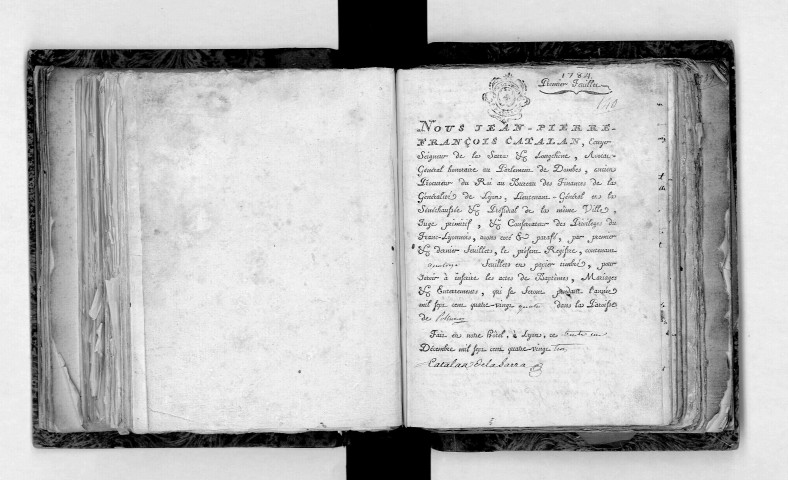 1784.
Premier Feuillet
110
NOUS JEAN-PIERRE-
FRANÇOIS CATALAN, Ecuyer
Seigneur de la Sarra & Longchêne, Avocat-
Général honoraire au Parlement de Dombes, ancien
Procureur du Roi au Bureau des Finances de la
Généralité de Lyon, Lieutenant-Général en la
Sénéchaussée & Présidial de la même Ville,
Juge primitif, & Conservateur des Privileges du
Franc-Lyonnois, avons coté & parafé, par premier
& dernier feuillets, le présent Registre, contenant
feuillets en papier timbré, pour
servir à inscrire les actes de Baptêmes, Mariages
& Enterrements, qui se feront pendant l'année
mil sept cent quatre-vingt quatre dans la Paroisse
de
Fait en notre Hôtel, à Lyon, ce trente un
Décembre mil sept cent quatre-vingt trois
Catalan Delasarra